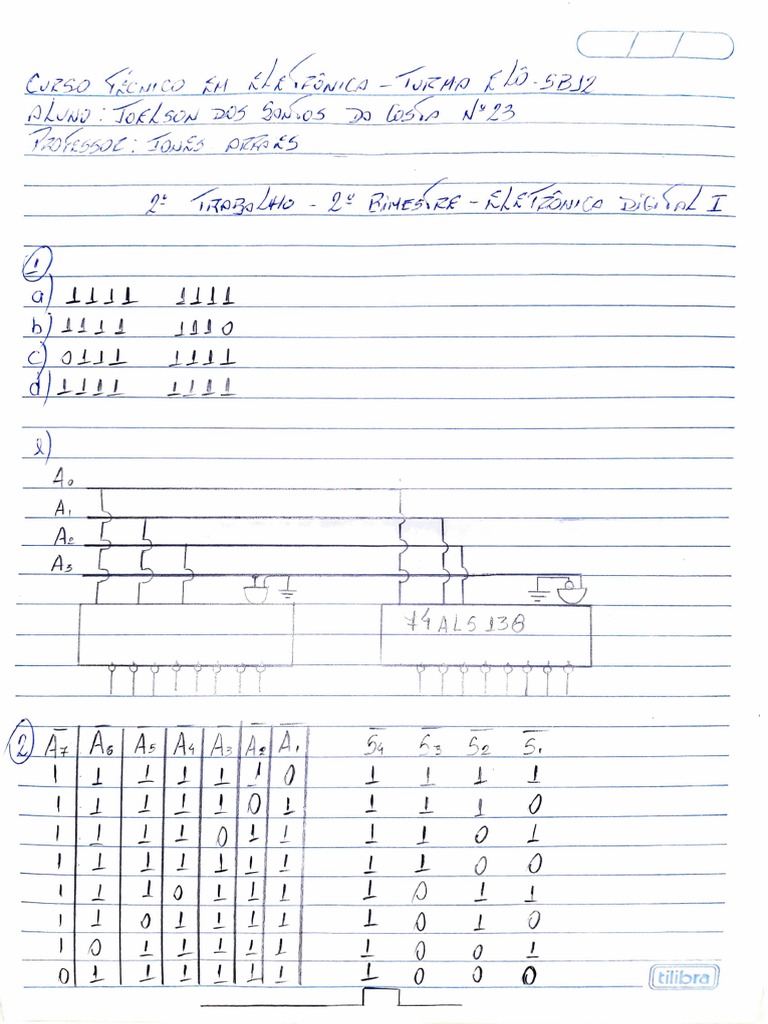 CURSO TÉCNICO EM ELETRÔNICA - TURMA ELÔ-SB12
ALUNO: JOELSON DOS SANTOS DA COSTA Nº 23
PROFESSOR: JONES
2º TRABALHO - 2º BIMESTRE - ELETRÔNICA DIGITAL I
1
a) 1111 1111
b) 1111 1110
c) 0111 1111
d) 1111 1111
l)
A0
A1
A2
A3
74ALS138
2 A7 A6 A5 A4 A3 A2 A1 S4 S3 S2 S1
1 1 1 1 1 1 0 1 1 1 1
1 1 1 1 1 0 1 1 1 1 0
1 1 1 1 0 1 1 1 1 0 1
1 1 1 1 1 1 1 1 1 0 0
1 1 1 0 1 1 1 1 0 1 1
1 1 0 1 1 1 1 1 0 1 0
1 0 1 1 1 1 1 1 0 0 1
0 1 1 1 1 1 1 1 0 0 0
tilibra